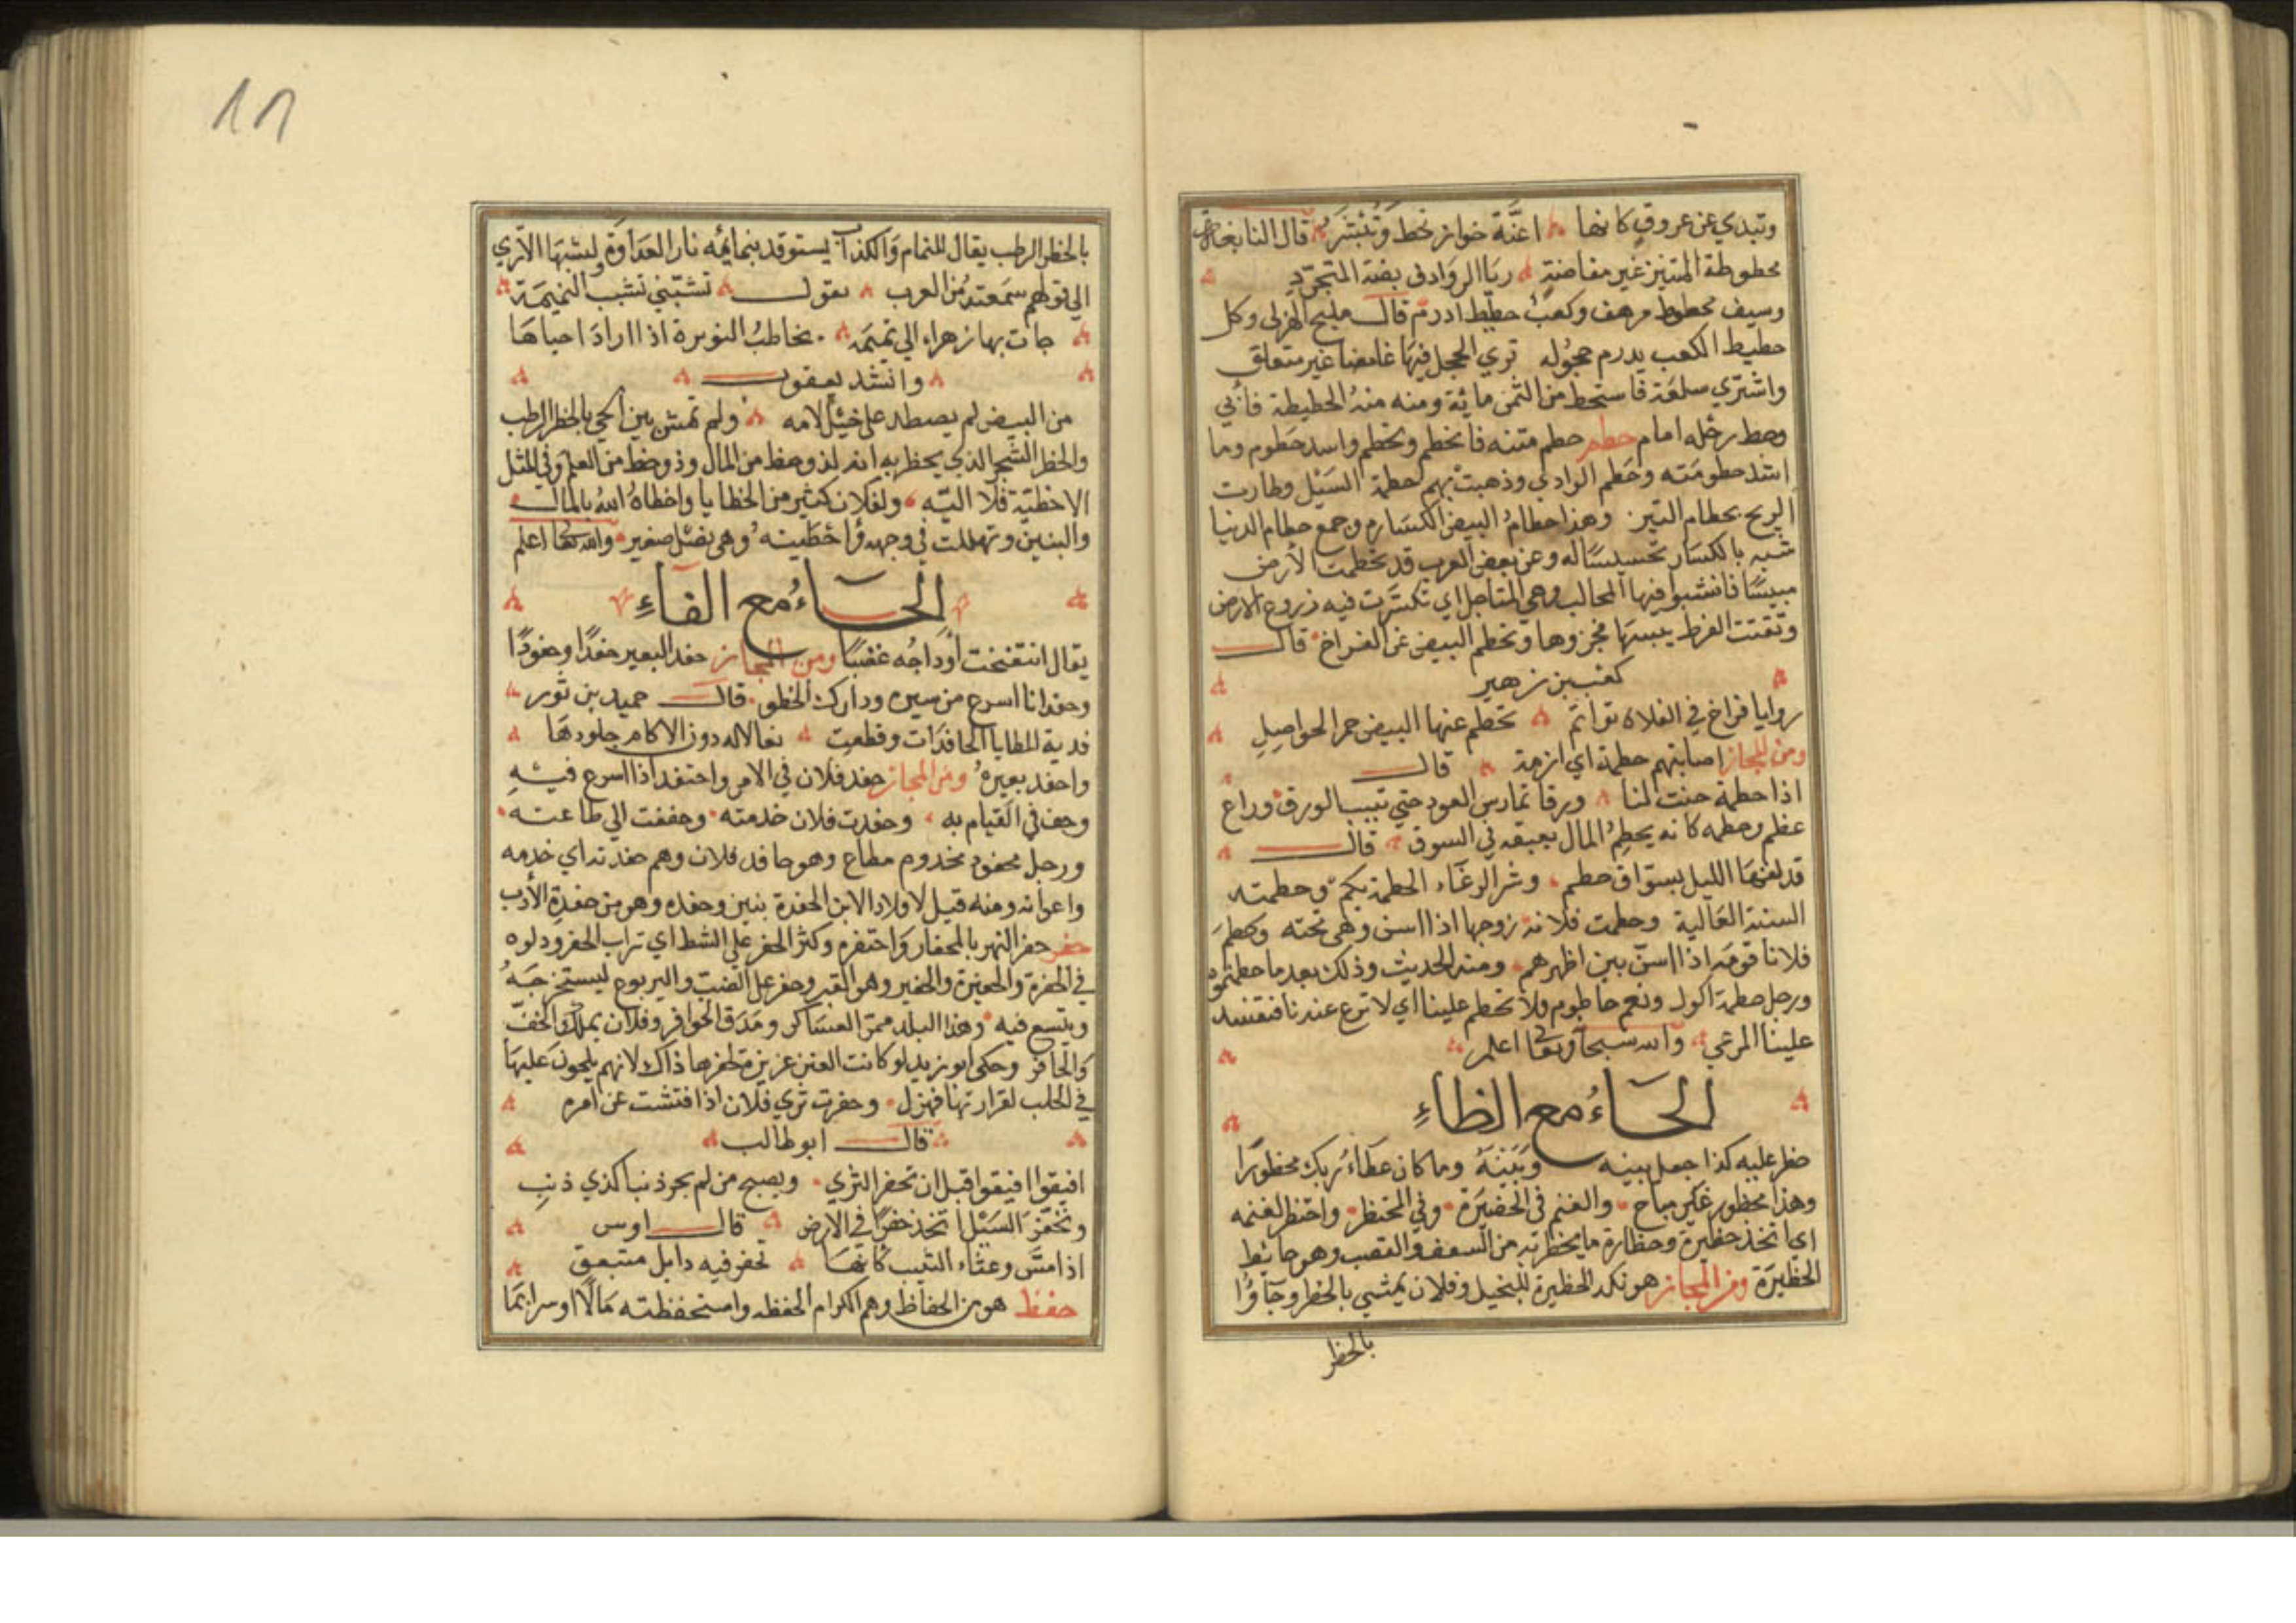 وتبدي عن عروق كانها اعنّة خواز تحط وتبتشر قال النابغة
محطوطة المتنين غير مفاضة ريا الروادف بضة المتجرد
وسيف محطوط مرهف وكعب حطيط ادرم قال مليح الهزلى وكل
حطيط الكعب يدرم حجوله تري الحجل فيها غامضا غير متعلق
واشتري سلعة فاستحط من الثمن مائة ومنه منه الحطيطة فأبي
وحط رحله امام حطم حطم متنه فانحطم وتحطم واسد حطوم وما
اشد حطومته وحطم الوادي وذهبت بهم حطمة السيل وطارت
الريح بحطام التبن وهذا حطام البيض لكساره وجمع حطام الدنيا
شبه بالكسار تخسيسا له وعن بعض العرب قد تحطمت الأرض
مبيسا فانشبوا فيها المخالب وهي المناجل اي تكسرت فيه زروع الارض
وتفتتت لفرط يبسها فجزوها وتحطم البيض عن الفراخ قال
كعب بن زهير
روايا فراخ في الفلاة توائم تحطم عنها البيض حمر الحواصل
ومن المجاز اصابتهم حطمة اي ازمة قال
اذا حطمة حتت لنا ورقا تمارس العود حتي تنبت الورق وراع
عظم وحطمه كانه يحطم المال بعبقه في السوق قال
قد لفها الليل بسواق حطم وشر الرعاء الحطمة بكم وحطمته
السنة العالية وحطمت فلانة زوجها اذا اسن وهي تحته وحطم
فلانا قومه اذا اسن بين اظهرهم ومنه الحديث وذلك بعد ما حطمتموه
ورجل حطمة اكول ونعم حاطوم ولا تحطم علينا اي لا ترع عندنا فتفسد
علينا المرعي والله سبحانه وتعالى اعلم
الحاء مع الظاء
حظر عليه كذا جعل بينه وبينه وما كان عطاء ربك محظورا
وهذا محظور غير مباح والغنم في الحضيرة وفي المحتظر واحتظر لغنمه
اي اتخذ حظيرة وحظارة ما يحظر به من السعف والقصب وهو حائط
الحظيرة ومن المجاز هو نكد الحظيرة للبخيل وفلان يمشي بالحظر وجآؤا
بالحظر
١٨
بالحظر الرطب يقال للنمام والكذاب يستوقد بنمايمه نار العداوة ويشبها الا تري
الي قولهم سمعته من العرب يقول تشبني تشب النميمة
جات بها زهراء الي تميمه يخاطب النويرة اذا اراد احياها
وانشد يعقوب
من البيض لم يصطد على خيل لامه ولم تمش بين الحي بالحظر الرطب
والحظر الشجر الذي يحظر به انه لذو حظ من المال وذو حظ من العلم وفي المثل
الا حظية فلا الية ولفلان كثير من الحظايا واحظاه الله بالمال
والبنين وتهللت في وجهه واحظيته وهي نضل صغير والله تعالى اعلم
الحاء مع الفاء
يقال انتفخت أوداجه غضبا ومن المجاز حفد البعير حفدا وحفودا
وحفدانا اسرع من سيره ودارك الخطو قال حميد بن ثور
فدية المطايا الحافدات وقطعت نعالا له دون الاكام جلودها
واحفد بعيره ومن المجاز حفد فلان في الامر واحتفد اذا اسرع فيه
وخف في القيام به وحفدت فلان خدمته وخففت الي طاعته
ورجل محفود مخدوم مطاع وهو حافد فلان وهم حفدته اي خدمه
واعوانه ومنه قيل لاولاد الابن الحفدة بنين وحفده وهو من حفدة الأدب
حفر حفر النهر بالمحفار واحتفره وكثر الحفر على الشط اي تراب الحفر ودلوه
في الحفرة والحفيرة والحفير وهو القبر وحفر على الضب واليربوع ليستخرجه
ويتسع فيه وهذا البلد ممر العساكر ومدق الحوافر وفلان يملك الخف
والحافر وحكى ابو زيد لو كانت العنز عزيزة لحفرها ذاك لانهم يلحون عليها
في الحلب لقرارتها فتهزل وحفرت ثري فلان اذا فتشت عن امره
قال ابو طالب
افيقوا افيقوا قبل ان تحفر الثري ويصبح من لم يجر ذنبا كذي ذنب
وتحفر السيل اتخذ حفرا في الارض قال اوس
اذا مسّ وعثاء الكثيب كانها تحفر فيه وابل متبعق
حفظ هو من الحفاظ وهم الكرام الحفظه واستحفظته مالا او سرا بما